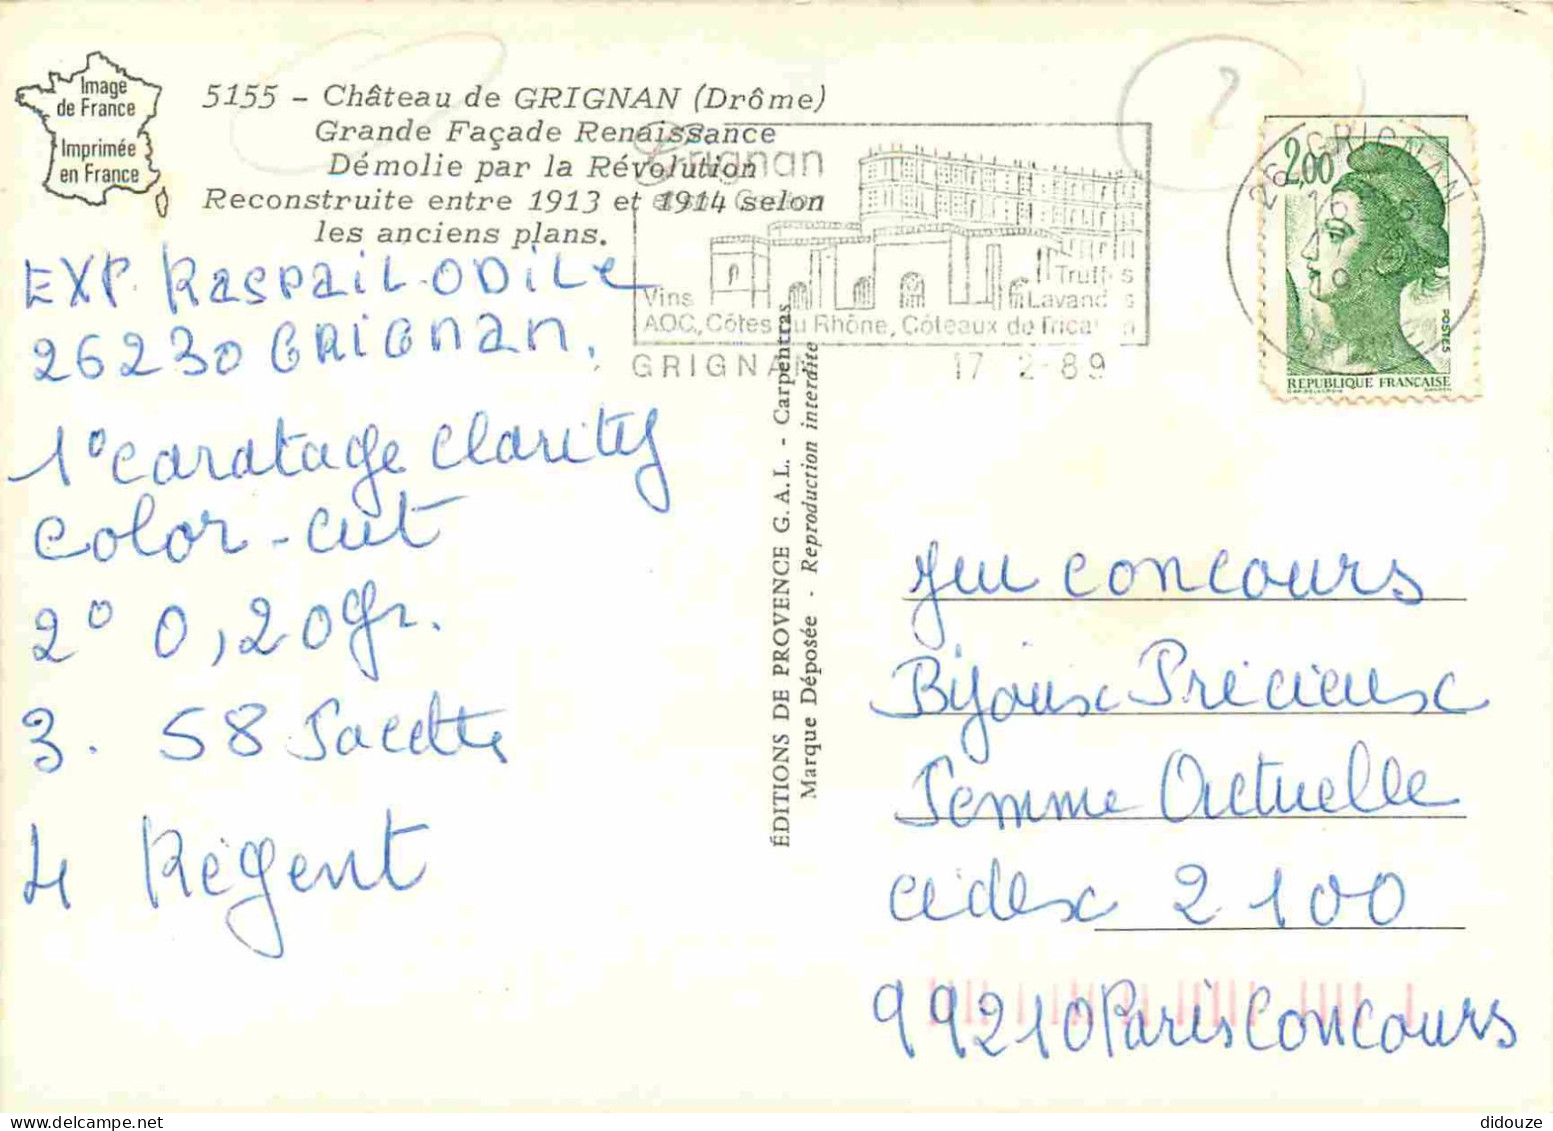 Image
de France
Imprimée
en France
5155 - Château de GRIGNAN (Drôme)
Grande Façade Renaissance
Démolie par la Révolution
Reconstruite entre 1913 et 1914 selon
les anciens plans.
EXP. RaspaiL-ODILe
26230 GRIGnan.
1° caratage clarity
color-cut
2° 0,20gr.
3. 58 facettes
4 Régent
ÉDITIONS DE PROVENCE G.A.L. - Carpentras
Marque Déposée - Reproduction interdite
Grignan
Truffes
Vins Lavandes
AOC, Côtes du Rhône, Côteaux du Tricastin
GRIGNAN 17 2-89
26 GRIGNAN
2,00
POSTES
REPUBLIQUE FRANÇAISE
Jeu concours
Bijoux Précieux
Femme Actuelle
cedex 2100
99210 Paris Concours
2
didouze